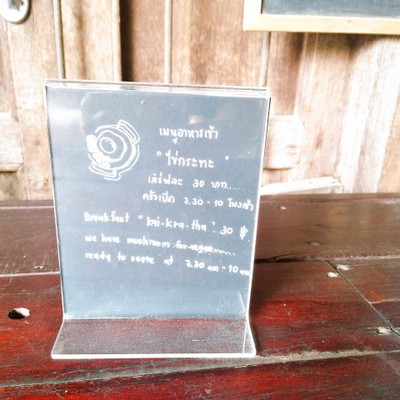 เมนูอาหารเช้า
"ไข่กระทะ"
เสิร์ฟละ 30 บาท......
ครัวเปิด 7.30 - 10 โมงเช้า
Breakfast "kai-kra-tha" 30 ฿
we have mushroom for vegan......
ready to serve at 7.30 am - 10 am